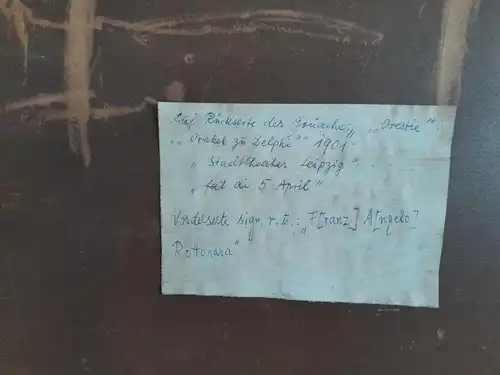 Auf Rückseite der Gouache: „ „Orestie"
„„Orakel zu Delphi"" 1901
„Stadttheater Leipzig"
„ 5 April"
Vorderseite sign. r. u.: „F[ranz] A[ngelo]
Rottonara"